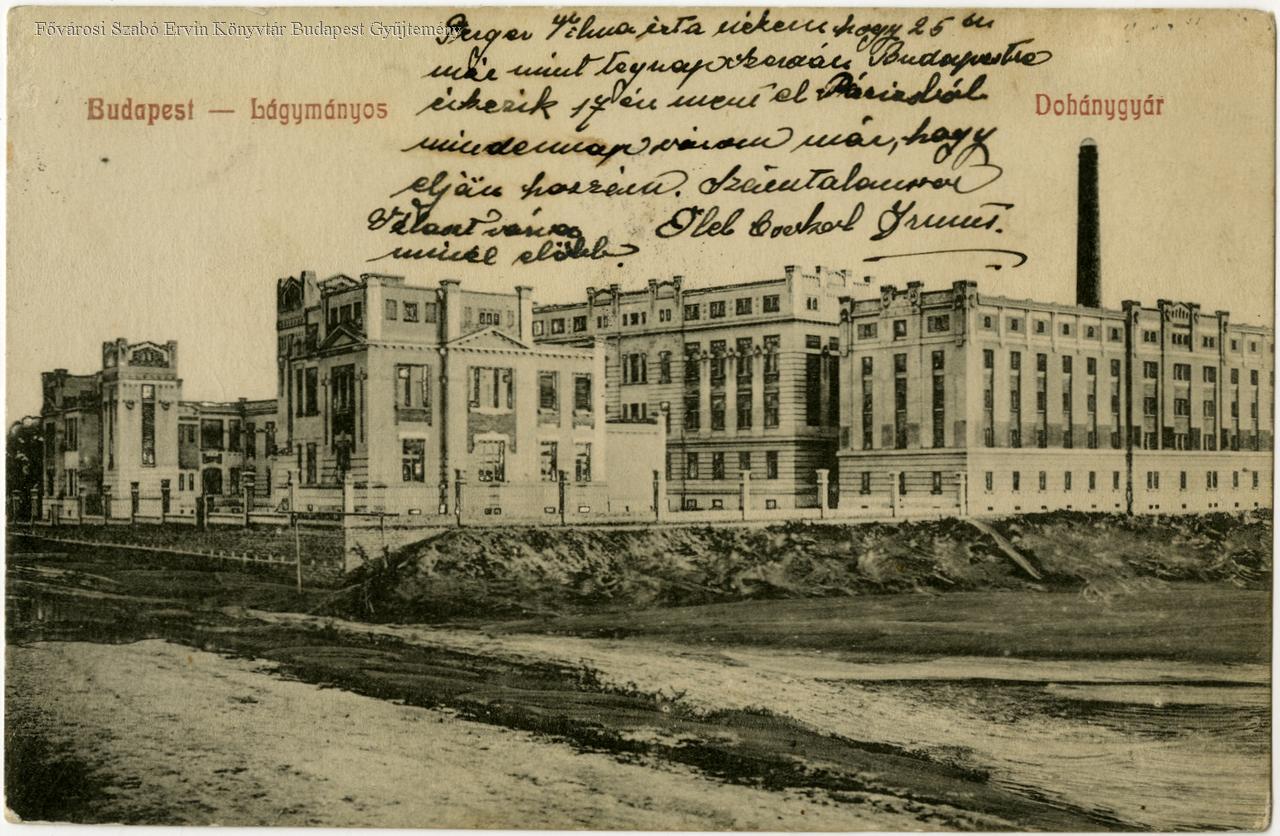 Fővárosi Szabó Ervin Könyvtár Budapest Gyűjtemény
Vilma írta nékem hogy 25 én
már mint tegnap szerdán Budapestre
érkezik 17 én ment el Párizsból
mindennap várom már, hogy
eljön hozzám. Számtalanszor
Választ várva Ölel Csókol
minél előbb.
Budapest — Lágymányos
Dohánygyár